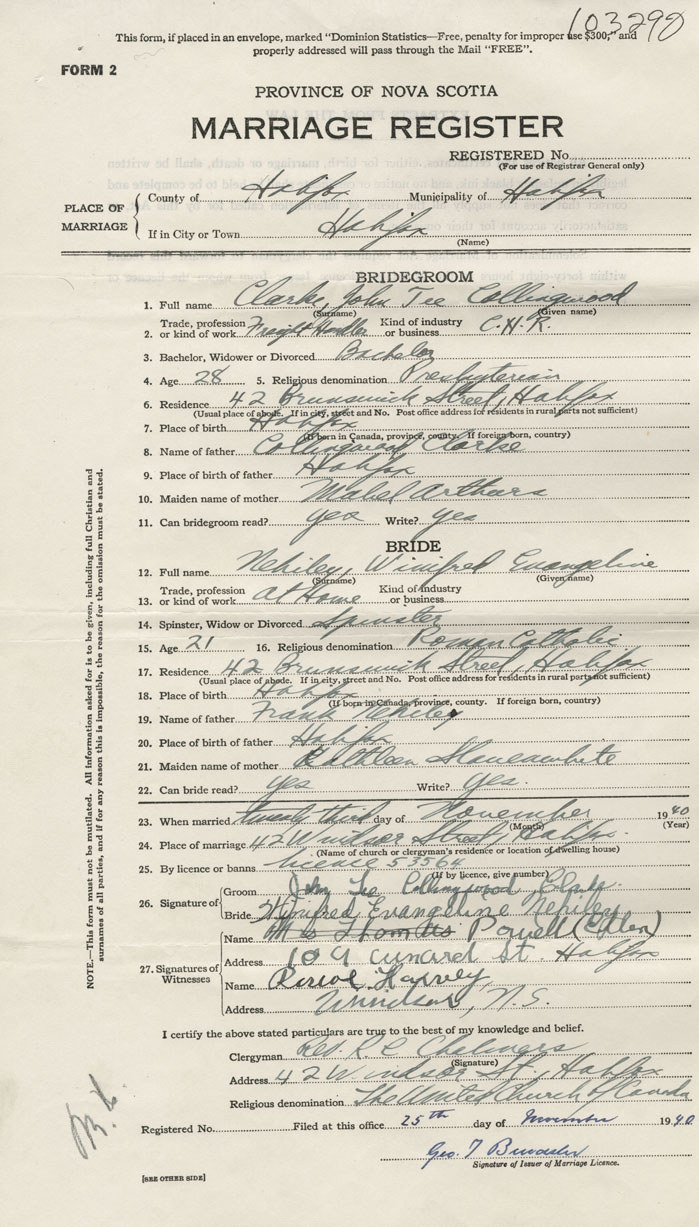 103290
This form, if placed in an envelope, marked "Dominion Statistics—Free, penalty for improper use $300;" and
properly addressed will pass through the Mail "FREE".
FORM 2
PROVINCE OF NOVA SCOTIA
MARRIAGE REGISTER
REGISTERED No.
(For use of Registrar General only)
PLACE OF MARRIAGE
County of Halifax Municipality of Halifax
If in City or Town Halifax
(Name)
BRIDEGROOM
1. Full name Clarke, John Tee Collingwood
(Surname) (Given name)
2. Trade, profession or kind of work Freight Handler Kind of industry or business C.N.R.
3. Bachelor, Widower or Divorced Bachelor
4. Age 28 5. Religious denomination Presbyterian
6. Residence 42 Brunswick Street, Halifax
(Usual place of abode. If in city, street and No. Post office address for residents in rural parts not sufficient)
7. Place of birth Halifax
(If born in Canada, province, county. If foreign born, country)
8. Name of father Collingwood Clarke
9. Place of birth of father Halifax
10. Maiden name of mother Mabel Arthurs
11. Can bridegroom read? yes Write? yes
BRIDE
12. Full name Nehiley, Winifred Evangeline
(Surname) (Given name)
13. Trade, profession or kind of work at Home Kind of industry or business
14. Spinster, Widow or Divorced Spinster
15. Age 21 16. Religious denomination Roman Catholic
17. Residence 42 Brunswick Street, Halifax
(Usual place of abode. If in city, street and No. Post office address for residents in rural parts not sufficient)
18. Place of birth Halifax
(If born in Canada, province, county. If foreign born, country)
19. Name of father Frank Nehiley
20. Place of birth of father Halifax
21. Maiden name of mother Kathleen Slauenwhite
22. Can bride read? yes Write? yes.
23. When married twenty third day of November 1940
(Month) (Year)
24. Place of marriage 42 Windsor Street, Halifax.
(Name of church or clergyman's residence or location of dwelling house)
25. By licence or banns licence 53564
(If by licence, give number)
26. Signature of
Groom John Tee Collingwood Clarke.
Bride Winifred Evangeline Nehiley
27. Signatures of Witnesses
Name Mrs Thomas Powell (Ellen)
Address 109 Cunard St. Halifax
Name Roscoe Harvey,
Address Windsor, N.S.
I certify the above stated particulars are true to the best of my knowledge and belief.
Clergyman Rev. R C Chalmers
(Signature)
Address 42 Windsor St., Halifax
Religious denomination The United Church of Canada
Registered No. Filed at this office 25th day of November 1940
Geo. T
Signature of Issuer of Marriage Licence.
[SEE OTHER SIDE]
NOTE.—This form must not be mutilated. All information asked for is to be given, including full Christian and
surnames of all parties, and if for any reason this is impossible, the reason for the omission must be stated.